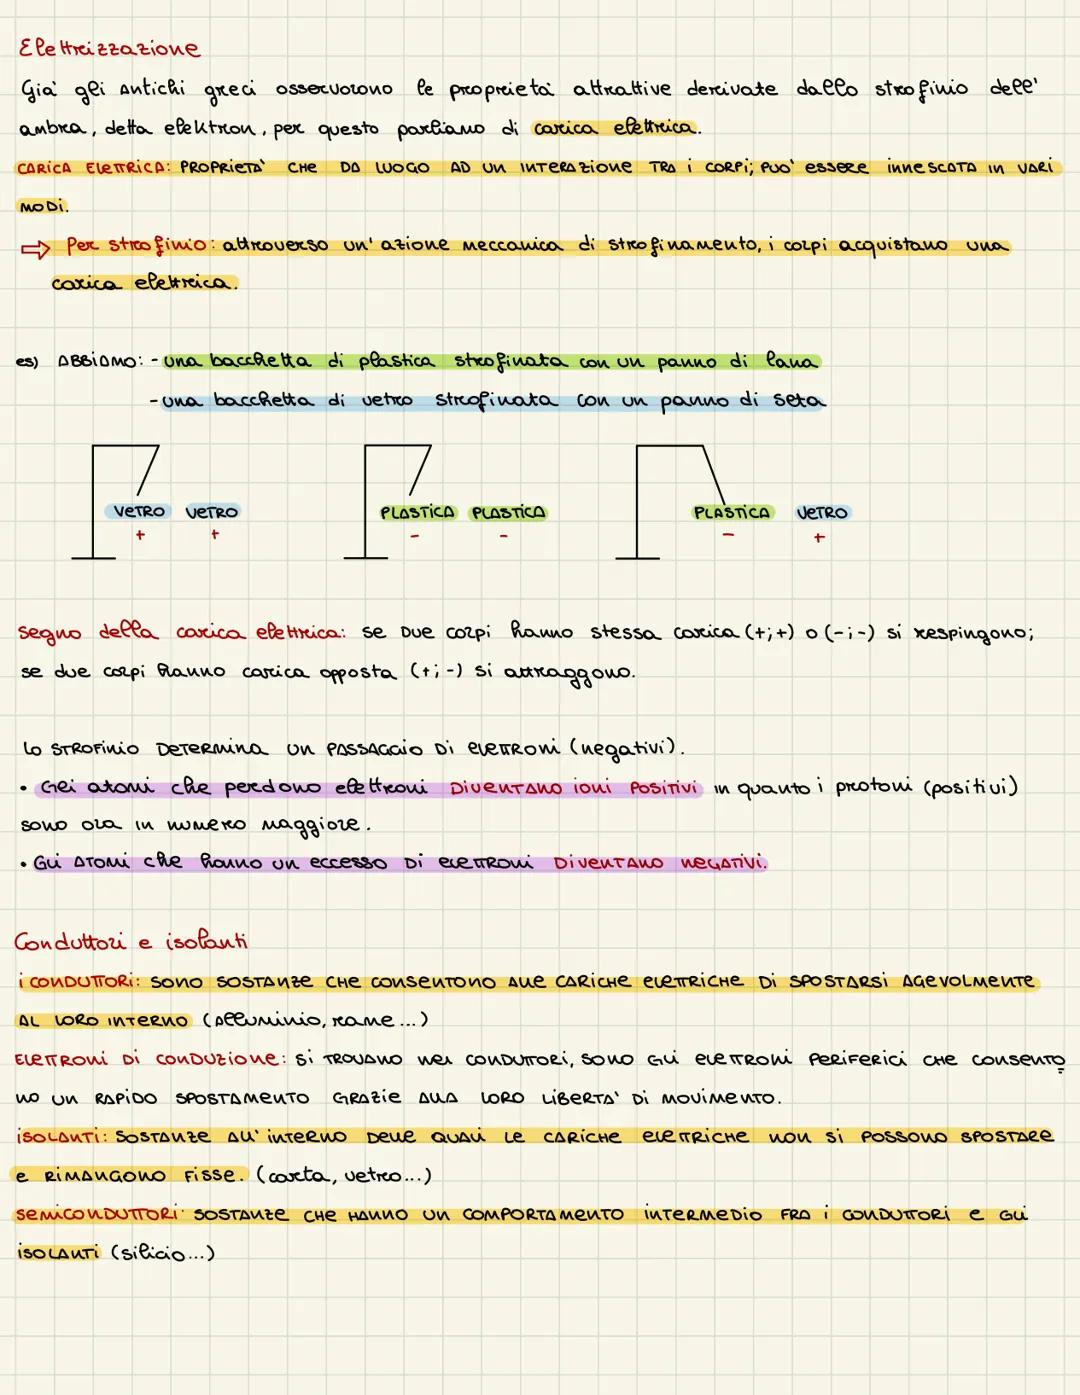 Elettrizzazione
Già gli antichi greci osservarono le proprietà attrattive derivate dallo strofinio dell'
ambra, detta elektron, per questo parliamo di carica elettrica.
CARICA ELETTRICA: PROPRIETA' CHE DA LUOGO AD UN INTERAZIONE TRA I CORPI; PUO' ESSERE INNESCATA IN VARI
MODI.
⇨ Per strofinio: attraverso un'azione meccanica di strofinamento, i corpi acquistano una
carica elettrica.
es) ABBIAMO: - una bacchetta di plastica strofinata con un panno di lana
- una bacchetta di vetro strofinata con un panno di seta
VETRO VETRO PLASTICA PLASTICA PLASTICA VETRO
+ + - - - +
Segno della carica elettrica: se due corpi hanno stessa carica (+;+) o (-;-) si respingono;
se due corpi hanno carica opposta (+;-) si attraggono.
LO STROFINIO DETERMINA UN PASSAGGIO DI ELETTRONI (negativi).
• Gli atomi che perdono elettroni DIVENTANO IONI POSITIVI in quanto i protoni (positivi)
sono ora in numero maggiore.
• GLI ATOMI che hanno un eccesso DI ELETTRONI DIVENTANO NEGATIVI.
Conduttori e isolanti
I CONDUTTORI: SONO SOSTANZE CHE CONSENTONO ALLE CARICHE ELETTRICHE DI SPOSTARSI AGEVOLMENTE
AL LORO INTERNO (Alluminio, rame...)
ELETTRONI DI CONDUZIONE: SI TROVANO NEI CONDUTTORI, SONO GLI ELETTRONI PERIFERICI CHE CONSENTO=
NO UN RAPIDO SPOSTAMENTO GRAZIE ALLA LORO LIBERTA' DI MOVIMENTO.
ISOLANTI: SOSTANZE ALL'INTERNO DELLE QUALI LE CARICHE ELETTRICHE NON SI POSSONO SPOSTARE
E RIMANGONO FISSE. (carta, vetro...)
SEMICONDUTTORI: SOSTANZE CHE HANNO UN COMPORTAMENTO INTERMEDIO FRA I CONDUTTORI E GLI
ISOLANTI (silicio...)